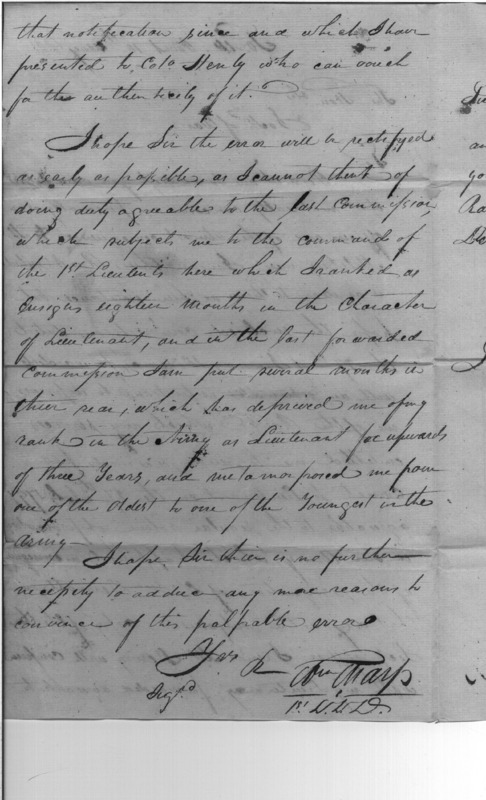 that notification since and which I have
presented to Colo Henly who can vouch
for the authenticity of it.
I hope Sir the error will be rectifyed
as early as possible, as I cannot think of
doing duty agreeable to the last Commission,
which subjects me to the command of
the 1st Lieutents here which I ranked as
Ensigns eighteen Months in the Character
of Lieutenant, and in the last forwarded
Commission I am put several months in
thier rear, which has deprived me of my
rank in the Army as Lieutenant for upwards
of three Years, and metamorposed me from
one of the Oldest to one of the Youngest in the
Army
I hope Sir thier is no further
necessity to adduce any more reasons to
convince of this palpable error
Yrs &
Sigd Wm Tharp
1st Lt